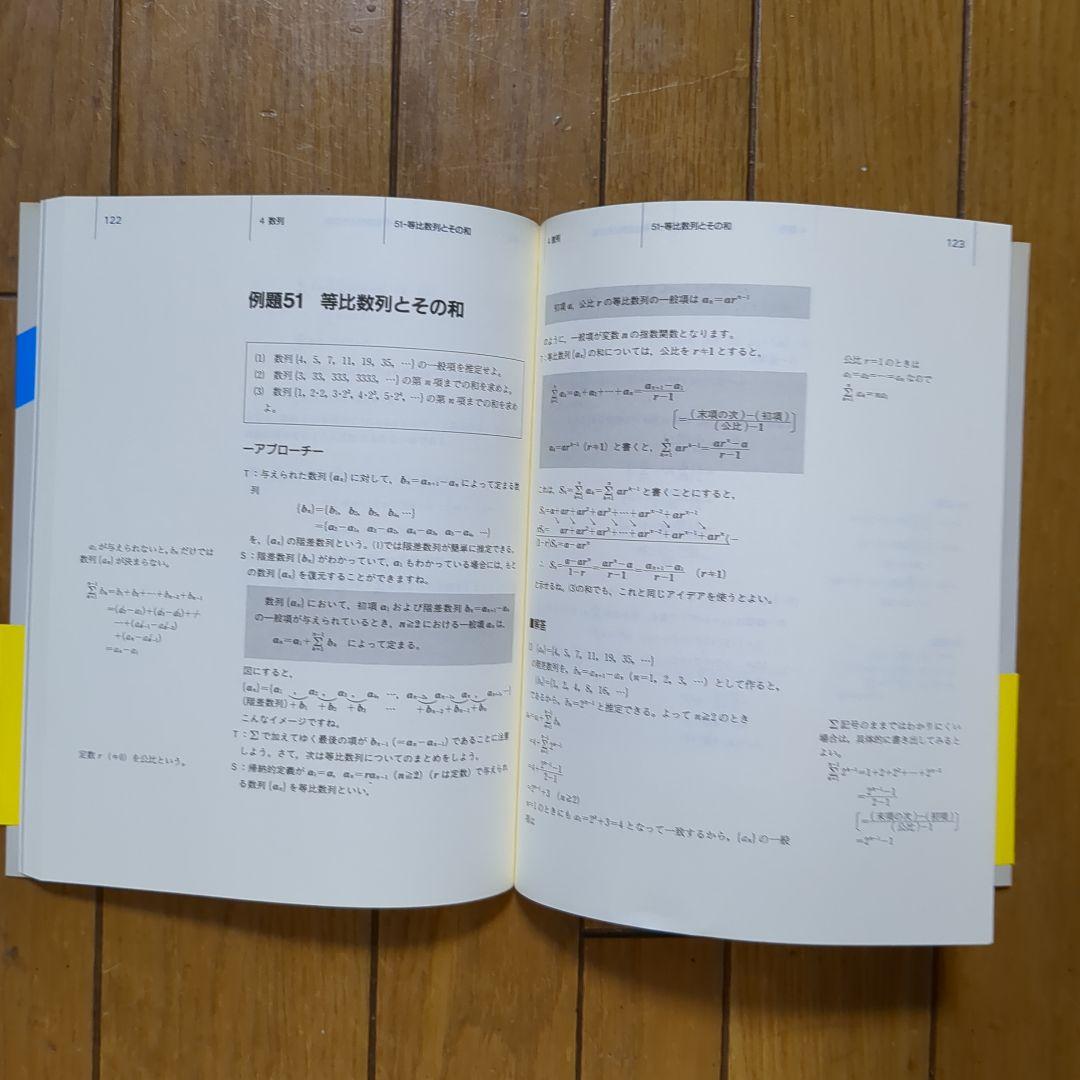 122
4 数列
51-等比数列とその和
例題51 等比数列とその和
(1) 数列{4, 5, 7, 11, 19, 35, …}の一般項を推定せよ。
(2) 数列{3, 33, 333, 3333, …}の第n項までの和を求めよ。
(3) 数列{1, 2·2, 3·2², 4·2³, 5·2⁴, …}の第n項までの和を求め
よ。
ーアプローチー
T：与えられた数列{aₙ}に対して，bₙ=aₙ₊₁−aₙによって定まる数
列
{bₙ}={b₁, b₂, b₃, b₄, …}
={a₂−a₁, a₃−a₂, a₄−a₃, a₅−a₄, …}
を，{aₙ}の階差数列という。(1)では階差数列が簡単に推定できる。
S：階差数列{bₙ}がわかっていて，a₁もわかっている場合には，もと
の数列{aₙ}を復元することができますね。
数列{aₙ}において，初項a₁および階差数列bₙ=aₙ₊₁−aₙ
の一般項が与えられているとき，n≧2における一般項aₙは，
aₙ=a₁+∑_{k=1}^{n−1} bₖ によって定まる。
図にすると，
{aₙ}={a₁, a₂, a₃, a₄, …, aₙ₋₂, aₙ₋₁, aₙ, …}
(階差数列)+b₁ +b₂ +b₃ … +bₙ₋₂+bₙ₋₁+bₙ
こんなイメージですね。
T：∑で加えてゆく最後の項がbₙ₋₁(=aₙ−aₙ₋₁)であることに注意
しよう。さて，次は等比数列についてのまとめをしよう。
S：帰納的定義がa₁=a，aₙ=raₙ₋₁ (n≧2) (rは定数)で与えられ
る数列{aₙ}を等比数列といい，
a₁が与えられないと，bₙだけでは
数列{aₙ}が決まらない。
∑_{k=1}^{n−1} bₖ=b₁+b₂+…+bₙ₋₂+bₙ₋₁
=(a₂−a₁)+(a₃−a₂)+
…+(aₙ₋₁−aₙ₋₂)
+(aₙ−aₙ₋₁)
=aₙ−a₁
定数r (≠0)を公比という。
4 数列
51-等比数列とその和
123
初項a，公比rの等比数列の一般項はaₙ=arⁿ⁻¹
のように，一般項が変数nの指数関数となります。
T：等比数列{aₙ}の和については，公比をr≠1とすると，
∑_{k=1}^{n} aₖ=a₁+a₂+…+aₙ=(aₙ₊₁−a₁)/(r−1)
[=((末項の次)−(初項))/((公比)−1)]
aₖ=arᵏ⁻¹ (r≠1)と書くと，∑_{k=1}^{n} arᵏ⁻¹=(arⁿ−a)/(r−1)
これは，Sₙ=∑_{k=1}^{n} aₖ=∑_{k=1}^{n} arᵏ⁻¹と書くことにすると，
Sₙ=a+ar+ar²+ar³+…+arⁿ⁻²+arⁿ⁻¹
rSₙ= ar+ar²+ar³+…+arⁿ⁻²+arⁿ⁻¹+arⁿ(−
(1−r)Sₙ=a−arⁿ
∴ Sₙ=(a−arⁿ)/(1−r)=(arⁿ−a)/(r−1)=(aₙ₊₁−a₁)/(r−1) (r≠1)
と示せるね。(3)の和でも，これと同じアイデアを使うとよい。
公比r=1のときは
a₁=a₂=…=aₙなので
∑_{k=1}^{n} aₖ=na₁
■解答
{aₙ}={4, 5, 7, 11, 19, 35, …}
の階差数列を，bₙ=aₙ₊₁−aₙ (n=1, 2, 3, …)として作ると，
{bₙ}={1, 2, 4, 8, 16, …}
であるから，bₙ=2ⁿ⁻¹と推定できる。よってn≧2のとき
aₙ=a₁+∑_{k=1}^{n−1} bₖ
=4+∑_{k=1}^{n−1} 2ᵏ⁻¹
=4+(2ⁿ⁻¹−1)/(2−1)
=2ⁿ⁻¹+3 (n≧2)
n=1のときにもa₁=2⁰+3=4となって一致するから，{aₙ}の一般
項は
∑記号のままではわかりにくい
場合は，具体的に書き出してみると
よい。
∑_{k=1}^{n−1} 2ᵏ⁻¹=1+2+2²+…+2ⁿ⁻²
=(2ⁿ⁻¹−1)/(2−1)
[=((末項の次)−(初項))/((公比)−1)]
=2ⁿ⁻¹−1